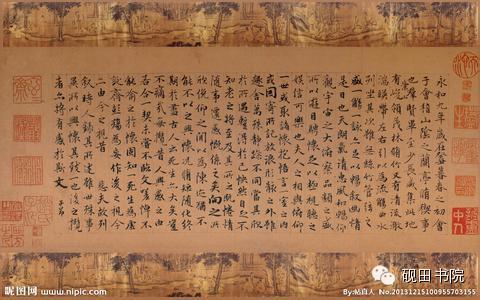 永和九年歲在癸丑暮春之初會
于會稽山陰之蘭亭脩稧事
也羣賢畢至少長咸集此地
有崇領茂林脩竹又有清流激
湍暎帶左右引以為流觴曲水
列坐其次雖無絲竹管弦之
盛一觴一詠亦足以暢敘幽情
是日也天朗氣清惠風和暢仰
觀宇宙之大俯察品類之盛
所以遊目騁懷足以極視聽之
娛信可樂也夫人之相與俯仰
一世或取諸懷抱悟言一室之內
或因寄所託放浪形骸之外雖
趣舍萬殊靜躁不同當其欣
於所遇蹔得於己怏然自足不
知老之將至及其所之既惓情
隨事遷感慨係之矣向之所
欣俛仰之閒以為陳迹猶不
能不以之興懷況脩短隨化終
期於盡古人云死生亦大矣豈
不痛哉每攬昔人興感之由
若合一契未嘗不臨文嗟悼不
能喻之於懷固知一死生為虛
誕齊彭殤為妄作後之視今
亦由今之視昔悲夫故列
敘時人錄其所述雖世殊事
異所以興懷其致一也後之攬
者亦將有感於斯文
昵图网 www.nipic.com
砚田书院
No.20131215100955703155